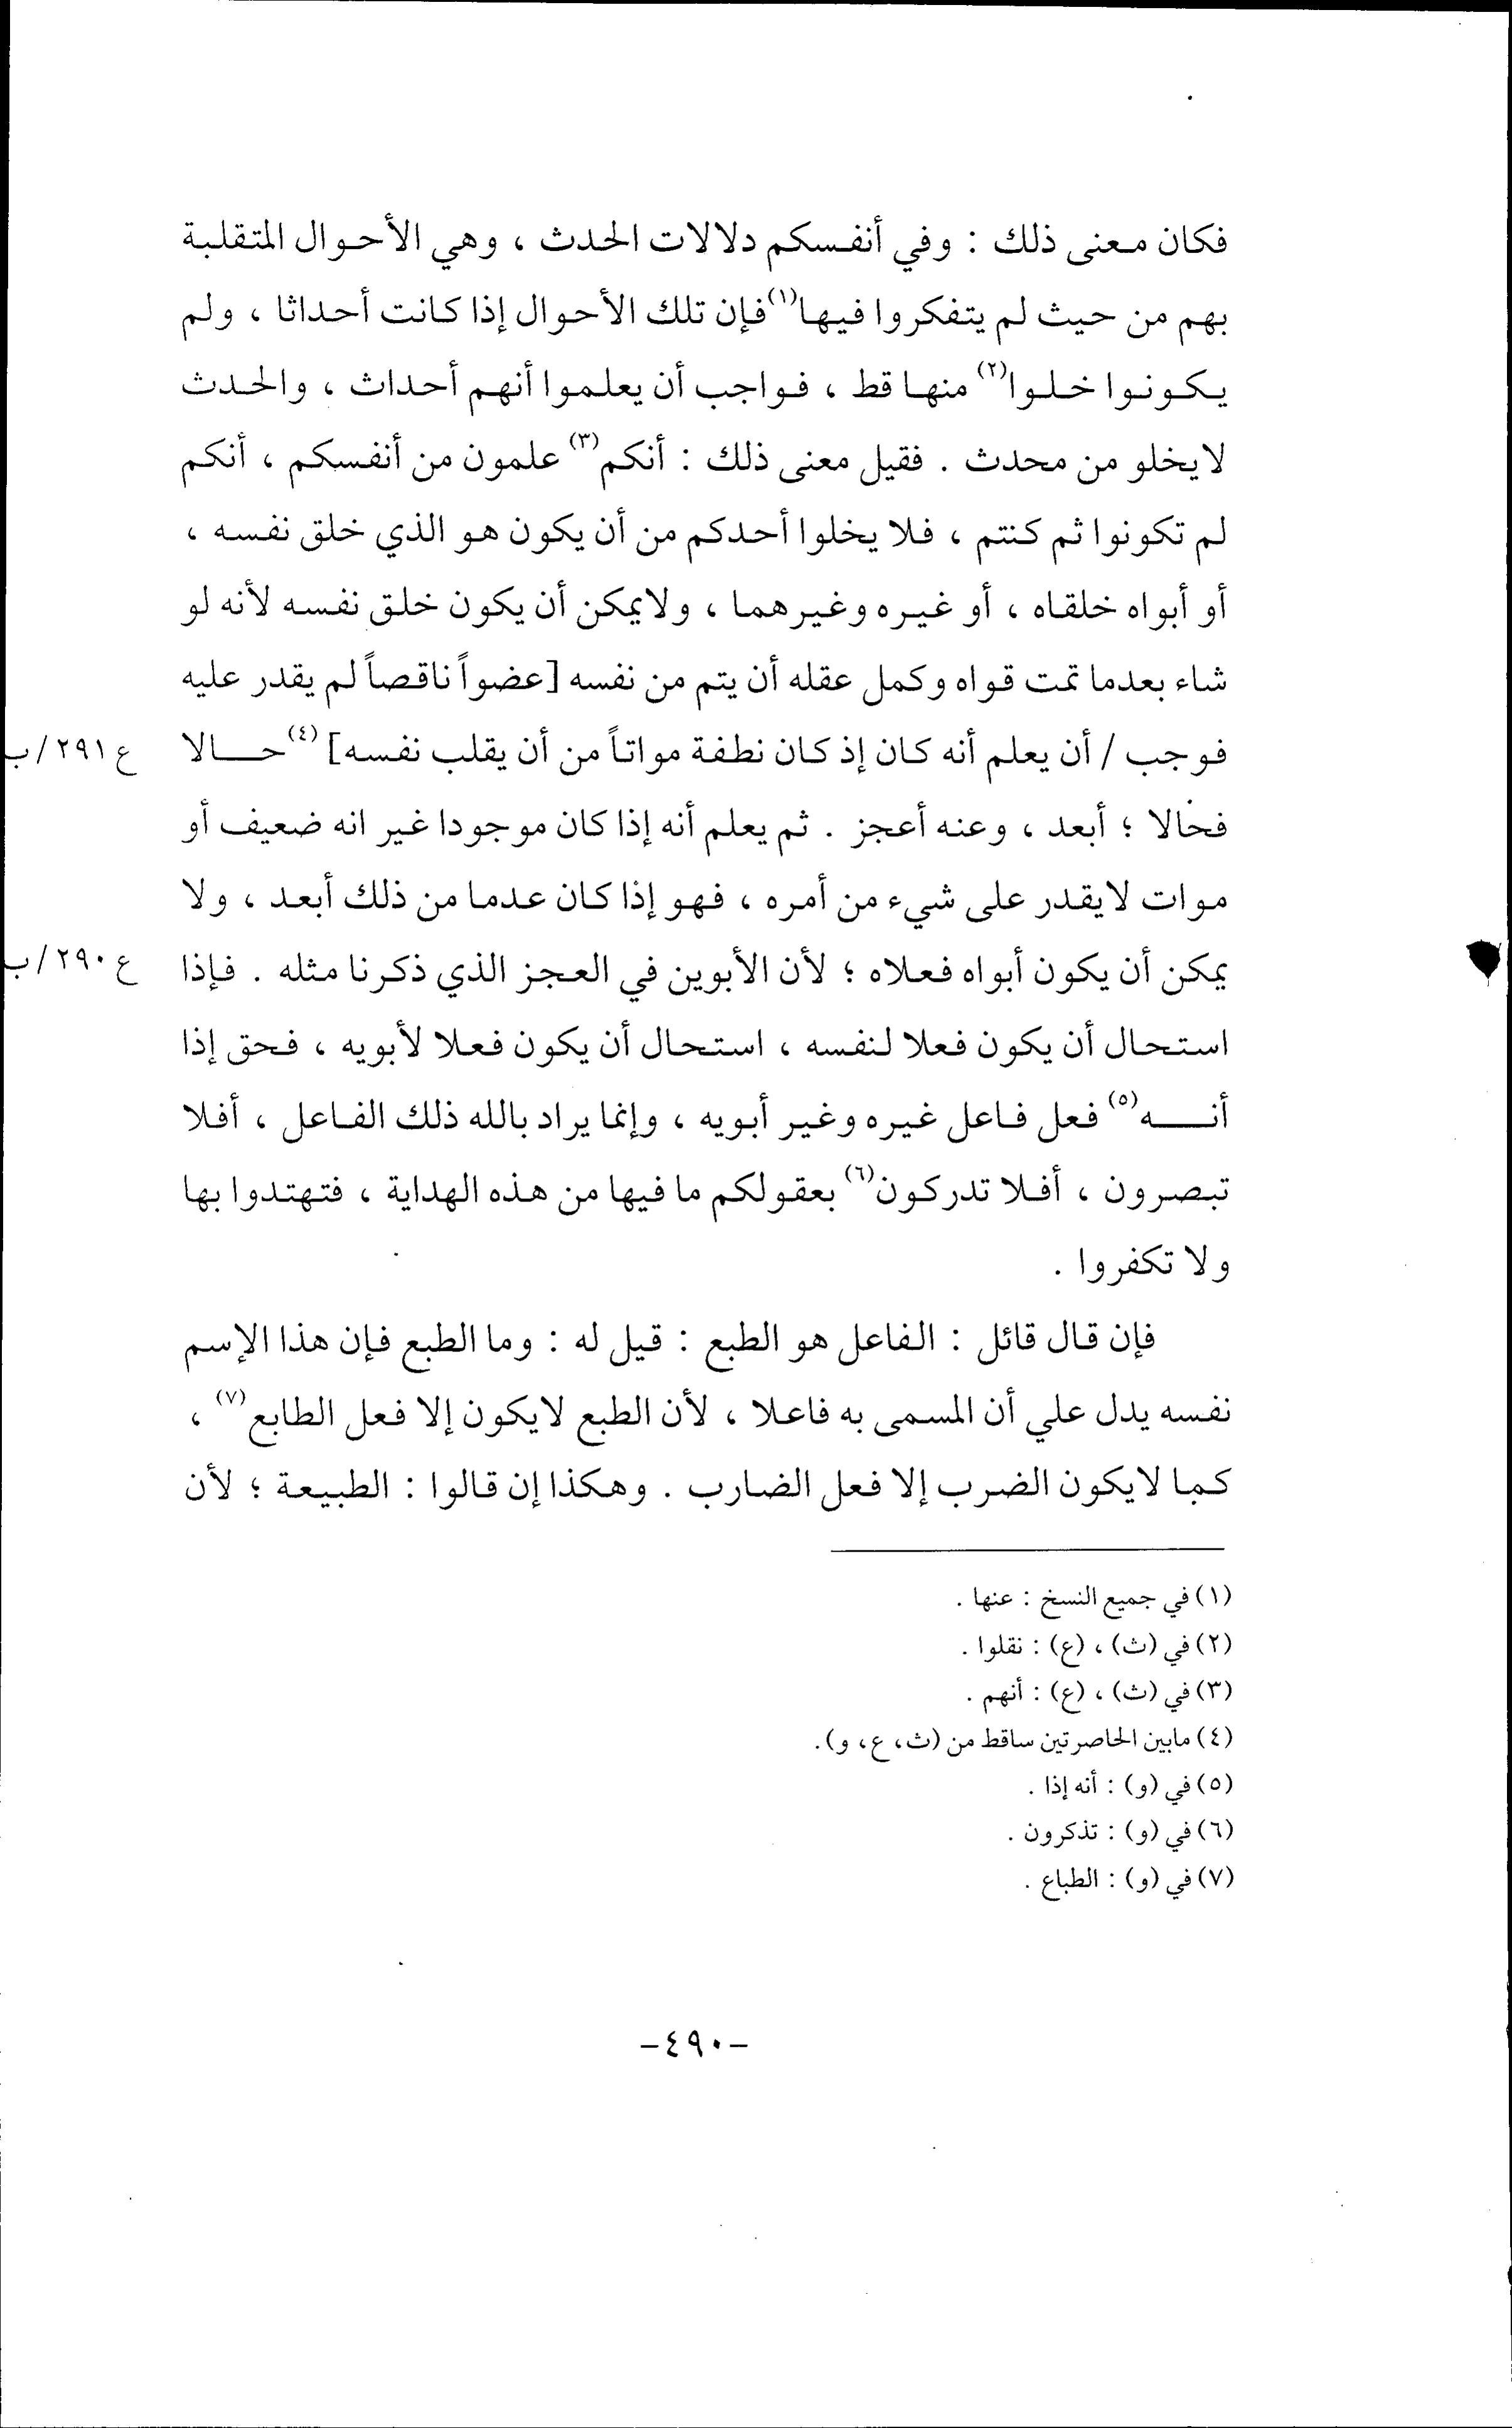 فكان معنى ذلك : وفي أنفسكم دلالات الحدث ، وهي الأحوال المتقلبة
بهم من حيث لم يتفكروا فيها(١) فإن تلك الأحوال إذا كانت أحداثا ، ولم
يكونوا خلوا(٢) منها قط ، فواجب أن يعلموا أنهم أحداث ، والحدث
لايخلو من محدث . فقيل معنى ذلك : أنكم(٣) علمون من أنفسكم ، أنكم
لم تكونوا ثم كنتم ، فلا يخلوا أحدكم من أن يكون هو الذي خلق نفسه ،
أو أبواه خلقاه ، أو غيره وغيرهما ، ولايمكن أن يكون خلق نفسه لأنه لو
شاء بعدما تمت قواه وكمل عقله أن يتم من نفسه [عضواً ناقصاً لم يقدر عليه
فوجب / أن يعلم أنه كان إذ كان نطفة مواتاً من أن يقلب نفسه](٤) حالا
ع ٢٩١/ب
فحالا ؛ أبعد ، وعنه أعجز . ثم يعلم أنه إذا كان موجودا غير انه ضعيف أو
موات لايقدر على شيء من أمره ، فهو إذا كان عدما من ذلك أبعد ، ولا
يمكن أن يكون أبواه فعلاه ؛ لأن الأبوين في العجز الذي ذكرنا مثله . فإذا
ع ٢٩٠/ب
استحال أن يكون فعلا لنفسه ، استحال أن يكون فعلا لأبويه ، فحق إذا
أنه(٥) فعل فاعل غيره وغير أبويه ، وإنما يراد بالله ذلك الفاعل ، أفلا
تبصرون ، أفلا تدركون(٦) بعقولكم ما فيها من هذه الهداية ، فتهتدوا بها
ولا تكفروا .
فإن قال قائل : الفاعل هو الطبع : قيل له : وما الطبع فإن هذا الإسم
نفسه يدل علي أن المسمى به فاعلا ، لأن الطبع لايكون إلا فعل الطابع(٧) ،
كما لايكون الضرب إلا فعل الضارب . وهكذا إن قالوا : الطبيعة ؛ لأن
(١) في جميع النسخ : عنها .
(٢) في (ث) ، (ع) : نقلوا .
(٣) في (ث) ، (ع) : أنهم .
(٤) مابين الحاصرتين ساقط من (ث، ع، و).
(٥) في (و) : أنه إذا .
(٦) في (و) : تذكرون .
(٧) في (و) : الطباع .
-٤٩٠-